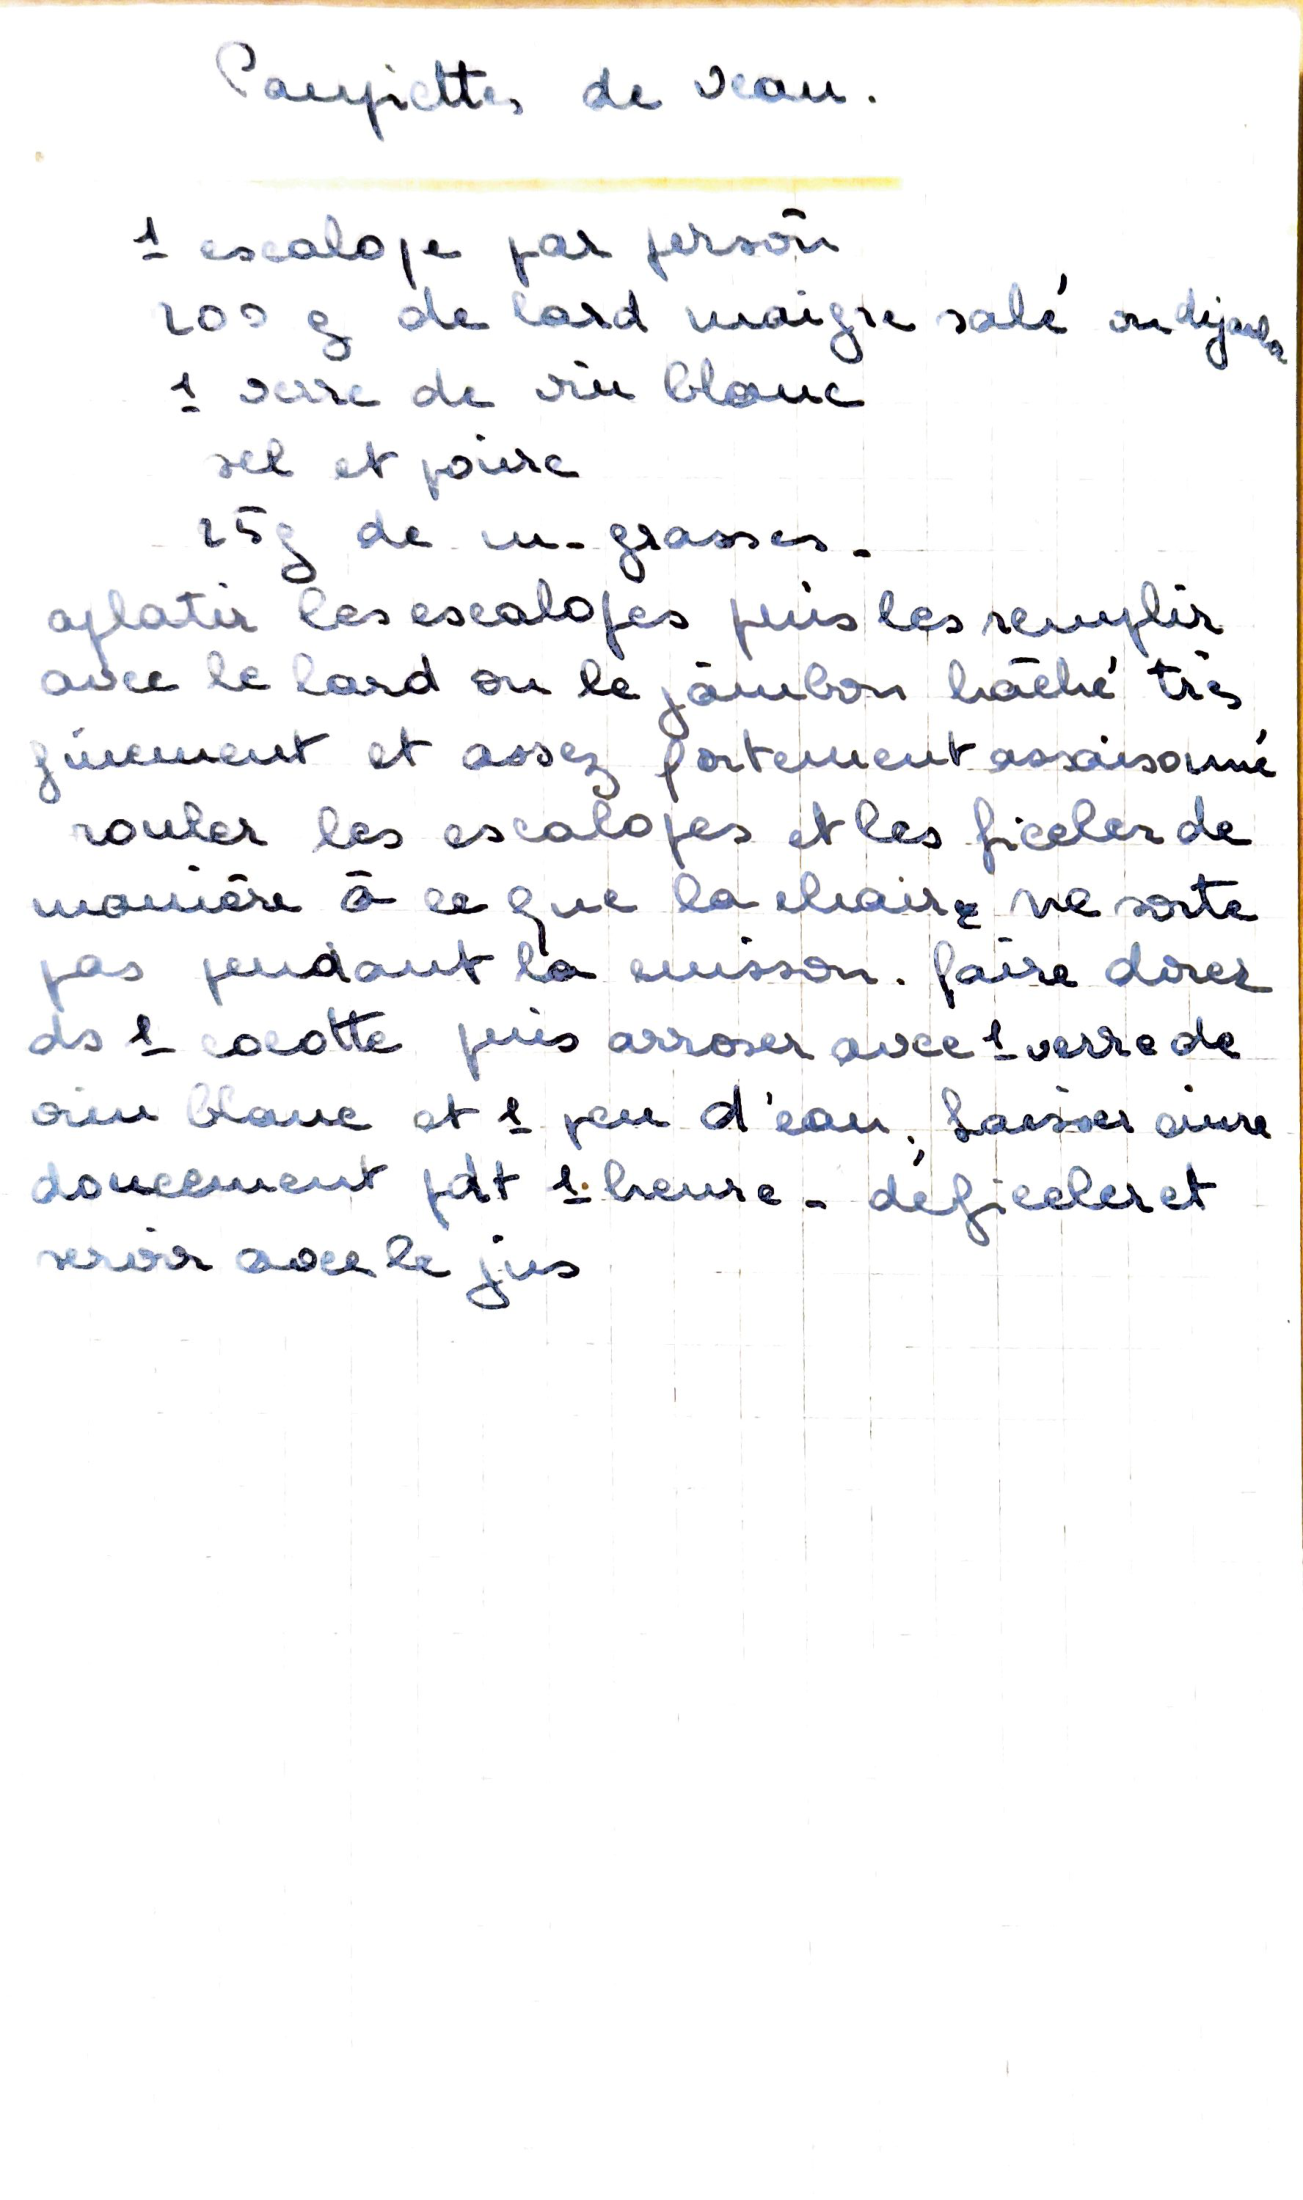 Paupiettes de veau.
1 escalope par persōn
200 g de lard maigre salé ou
1 verre de vin blanc
sel et poivre
25g de m-grasses.
aplatir les escalopes puis les remplir
avec le lard ou le jâmbon hâché très
finement et assez fortement assaisonné
rouler les escalopes et les ficeler de
manière à ce que la chair ne sorte
pas pendant la cuisson. faire dorer
ds 1 cocotte puis arroser avec 1 verre de
vin blanc et 1 peu d'eau. Laisser cuire
doucement pdt 1 heure - déficeler et
servir avec le jus